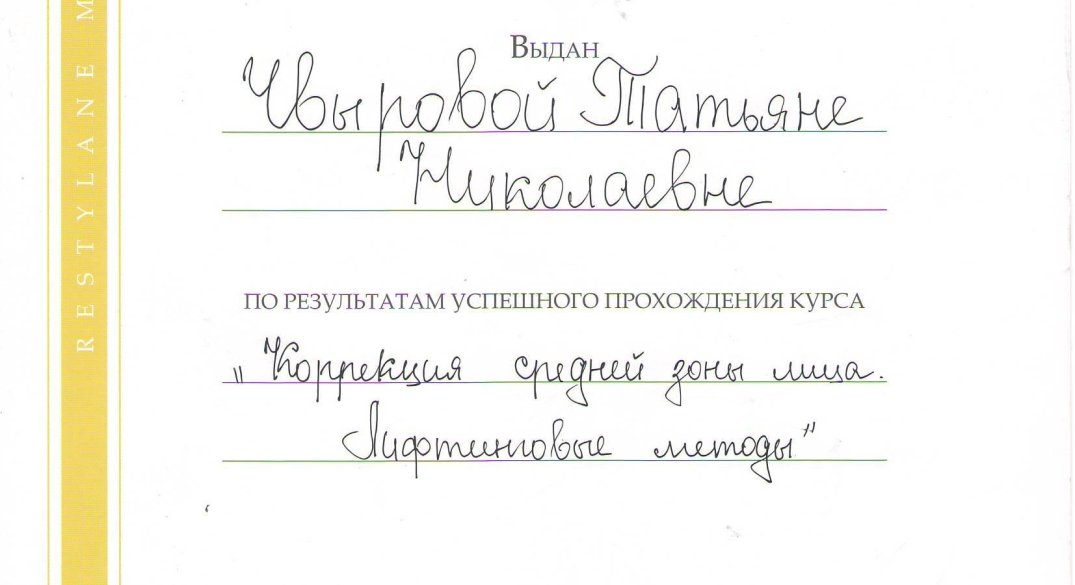 RESTYLANE M
Выдан
Чвыровой Татьяне
Николаевне
ПО РЕЗУЛЬТАТАМ УСПЕШНОГО ПРОХОЖДЕНИЯ КУРСА
"Коррекция средней зоны лица.
Лифтинговые методы"